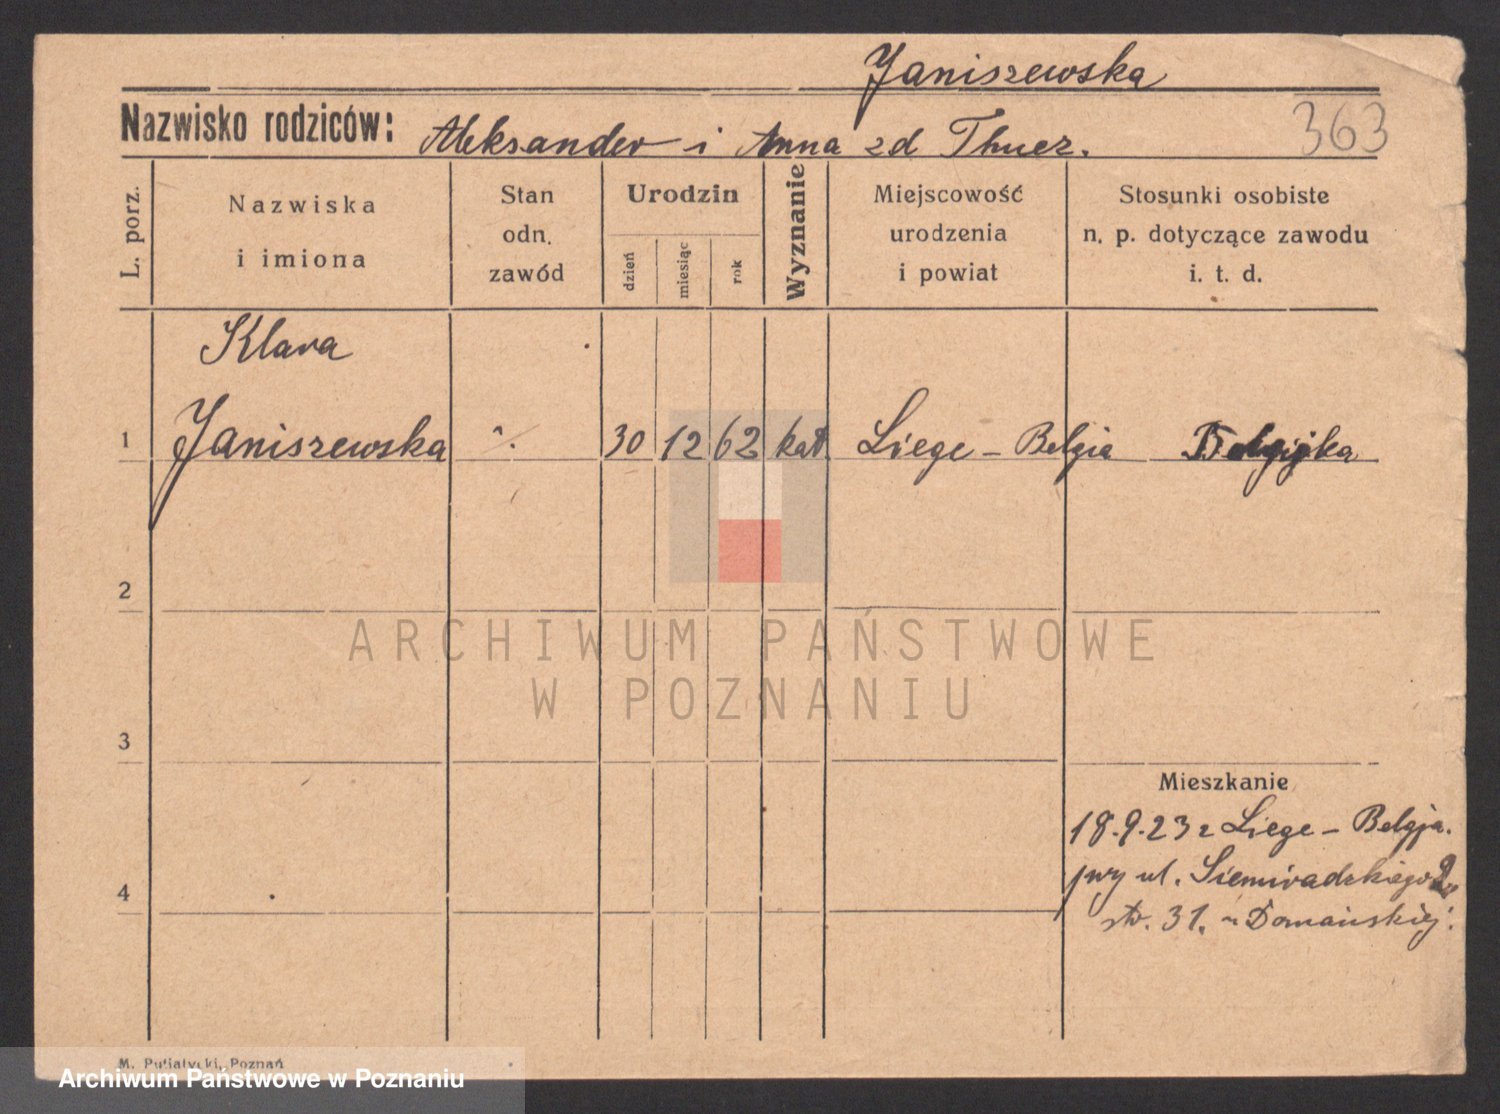 Janiszewska
Nazwisko rodziców: Aleksander i Anna zd Thuez.
363
L. porz.
Nazwiska
i imiona
Stan
odn.
zawód
Urodzin
dzień
miesiąc
rok
Wyznanie
Miejscowość
urodzenia
i powiat
Stosunki osobiste
n. p. dotyczące zawodu
i. t. d.
Klara
1 Janiszewska ./. 30 12 62 kat. Liege - Belgia Belgijka
2
ARCHIWUM PAŃSTWOWE
W POZNANIU
3
Mieszkanie
18.9.23 z Liege - Belgja.
przy ul. Siemiradzkiego
4
str. 31. u Domańskiej.
M. Putiatycki, Poznań
Archiwum Państwowe w Poznaniu